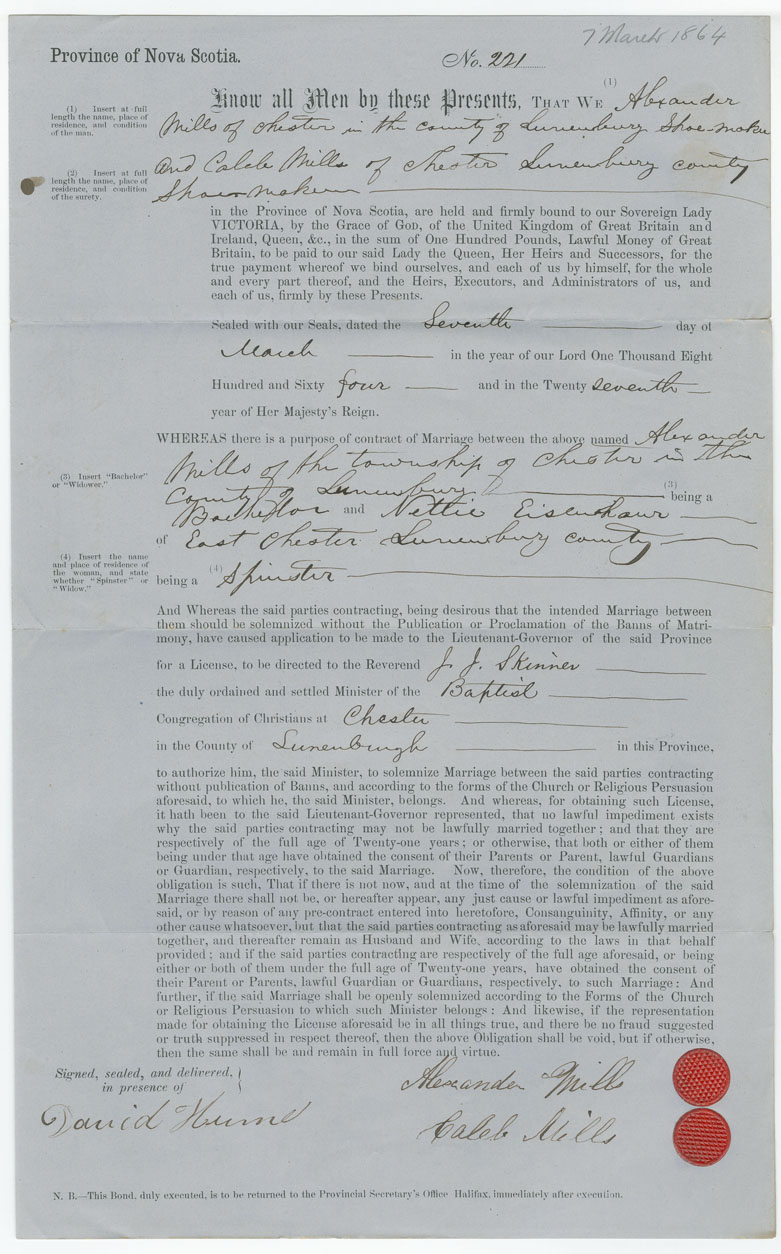 7 March 1864
Province of Nova Scotia.
No. 221
(1) Insert at full
length the name, place of
residence, and condition
of the man.
(1)
Know all Men by these Presents, THAT WE Alexander
Mills of Chester in the County of Lunenburg Shoe-maker
(2) Insert at full
length the name, place of
residence, and condition
of the surety.
and Caleb Mills of Chester Lunenburg County
Shoe maker
in the Province of Nova Scotia, are held and firmly bound to our Sovereign Lady
VICTORIA, by the Grace of GOD, of the United Kingdom of Great Britain and
Ireland, Queen, &c., in the sum of One Hundred Pounds, Lawful Money of Great
Britain, to be paid to our said Lady the Queen, Her Heirs and Successors, for the
true payment whereof we bind ourselves, and each of us by himself, for the whole
and every part thereof, and the Heirs, Executors, and Administrators of us, and
each of us, firmly by these Presents.
Sealed with our Seals, dated the Seventh day of
March in the year of our Lord One Thousand Eight
Hundred and Sixty four and in the Twenty seventh
year of Her Majesty's Reign.
WHEREAS there is a purpose of contract of Marriage between the above named Alexander
Mills of the township of Chester in the
(3) Insert "Bachelor"
or "Widower."
County of Lunenburg (3) being a
Bachellor and Nettie Eisenhaur
of East Chester Lunenburg County
(4) Insert the name
and place of residence of
the woman, and state
whether "Spinster" or
"Widow."
being a (4) Spinster
And Whereas the said parties contracting, being desirous that the intended Marriage between
them should be solemnized without the Publication or Proclamation of the Banns of Matri-
mony, have caused application to be made to the Lieutenant-Governor of the said Province
for a License, to be directed to the Reverend J. J. Skinner
the duly ordained and settled Minister of the Baptist
Congregation of Christians at Chester
in the County of Lunenburgh in this Province,
to authorize him, the said Minister, to solemnize Marriage between the said parties contracting
without publication of Banns, and according to the forms of the Church or Religious Persuasion
aforesaid, to which he, the said Minister, belongs. And whereas, for obtaining such License,
it hath been to the said Lieutenant-Governor represented, that no lawful impediment exists
why the said parties contracting may not be lawfully married together; and that they are
respectively of the full age of Twenty-one years; or otherwise, that both or either of them
being under that age have obtained the consent of their Parents or Parent, lawful Guardians
or Guardian, respectively, to the said Marriage. Now, therefore, the condition of the above
obligation is such, That if there is not now, and at the time of the solemnization of the said
Marriage there shall not be, or hereafter appear, any just cause or lawful impediment as afore-
said, or by reason of any pre-contract entered into heretofore, Consanguinity, Affinity, or any
other cause whatsoever, but that the said parties contracting as aforesaid may be lawfully married
together, and thereafter remain as Husband and Wife, according to the laws in that behalf
provided; and if the said parties contracting are respectively of the full age aforesaid, or being
either or both of them under the full age of Twenty-one years, have obtained the consent of
their Parent or Parents, lawful Guardian or Guardians, respectively, to such Marriage: And
further, if the said Marriage shall be openly solemnized according to the Forms of the Church
or Religious Persuasion to which such Minister belongs: And likewise, if the representation
made for obtaining the License aforesaid be in all things true, and there be no fraud suggested
or truth suppressed in respect thereof, then the above Obligation shall be void, but if otherwise,
then the same shall be and remain in full force and virtue.
Signed, sealed, and delivered,
in presence of
Alexander Mills
David Hume
Caleb Mills
N. B.—This Bond, duly executed, is to be returned to the Provincial Secretary's Office Halifax, immediately after execution.